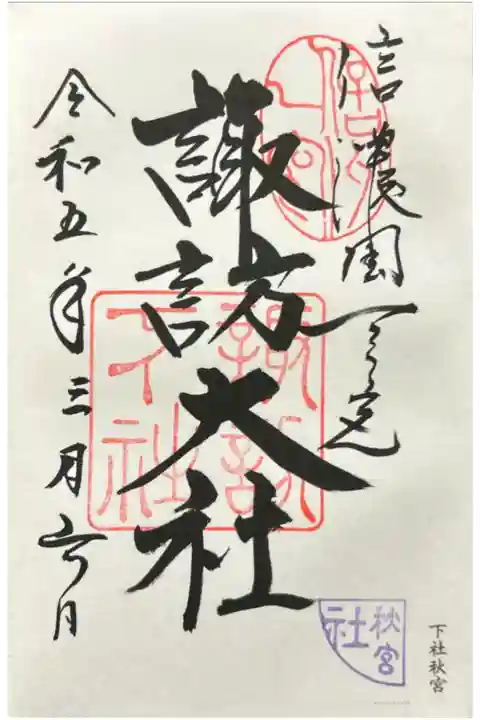 信濃国一之宮
信濃一宮
諏訪大社
諏訪
下社
令和五年三月六日
秋宮
社
下社秋宮